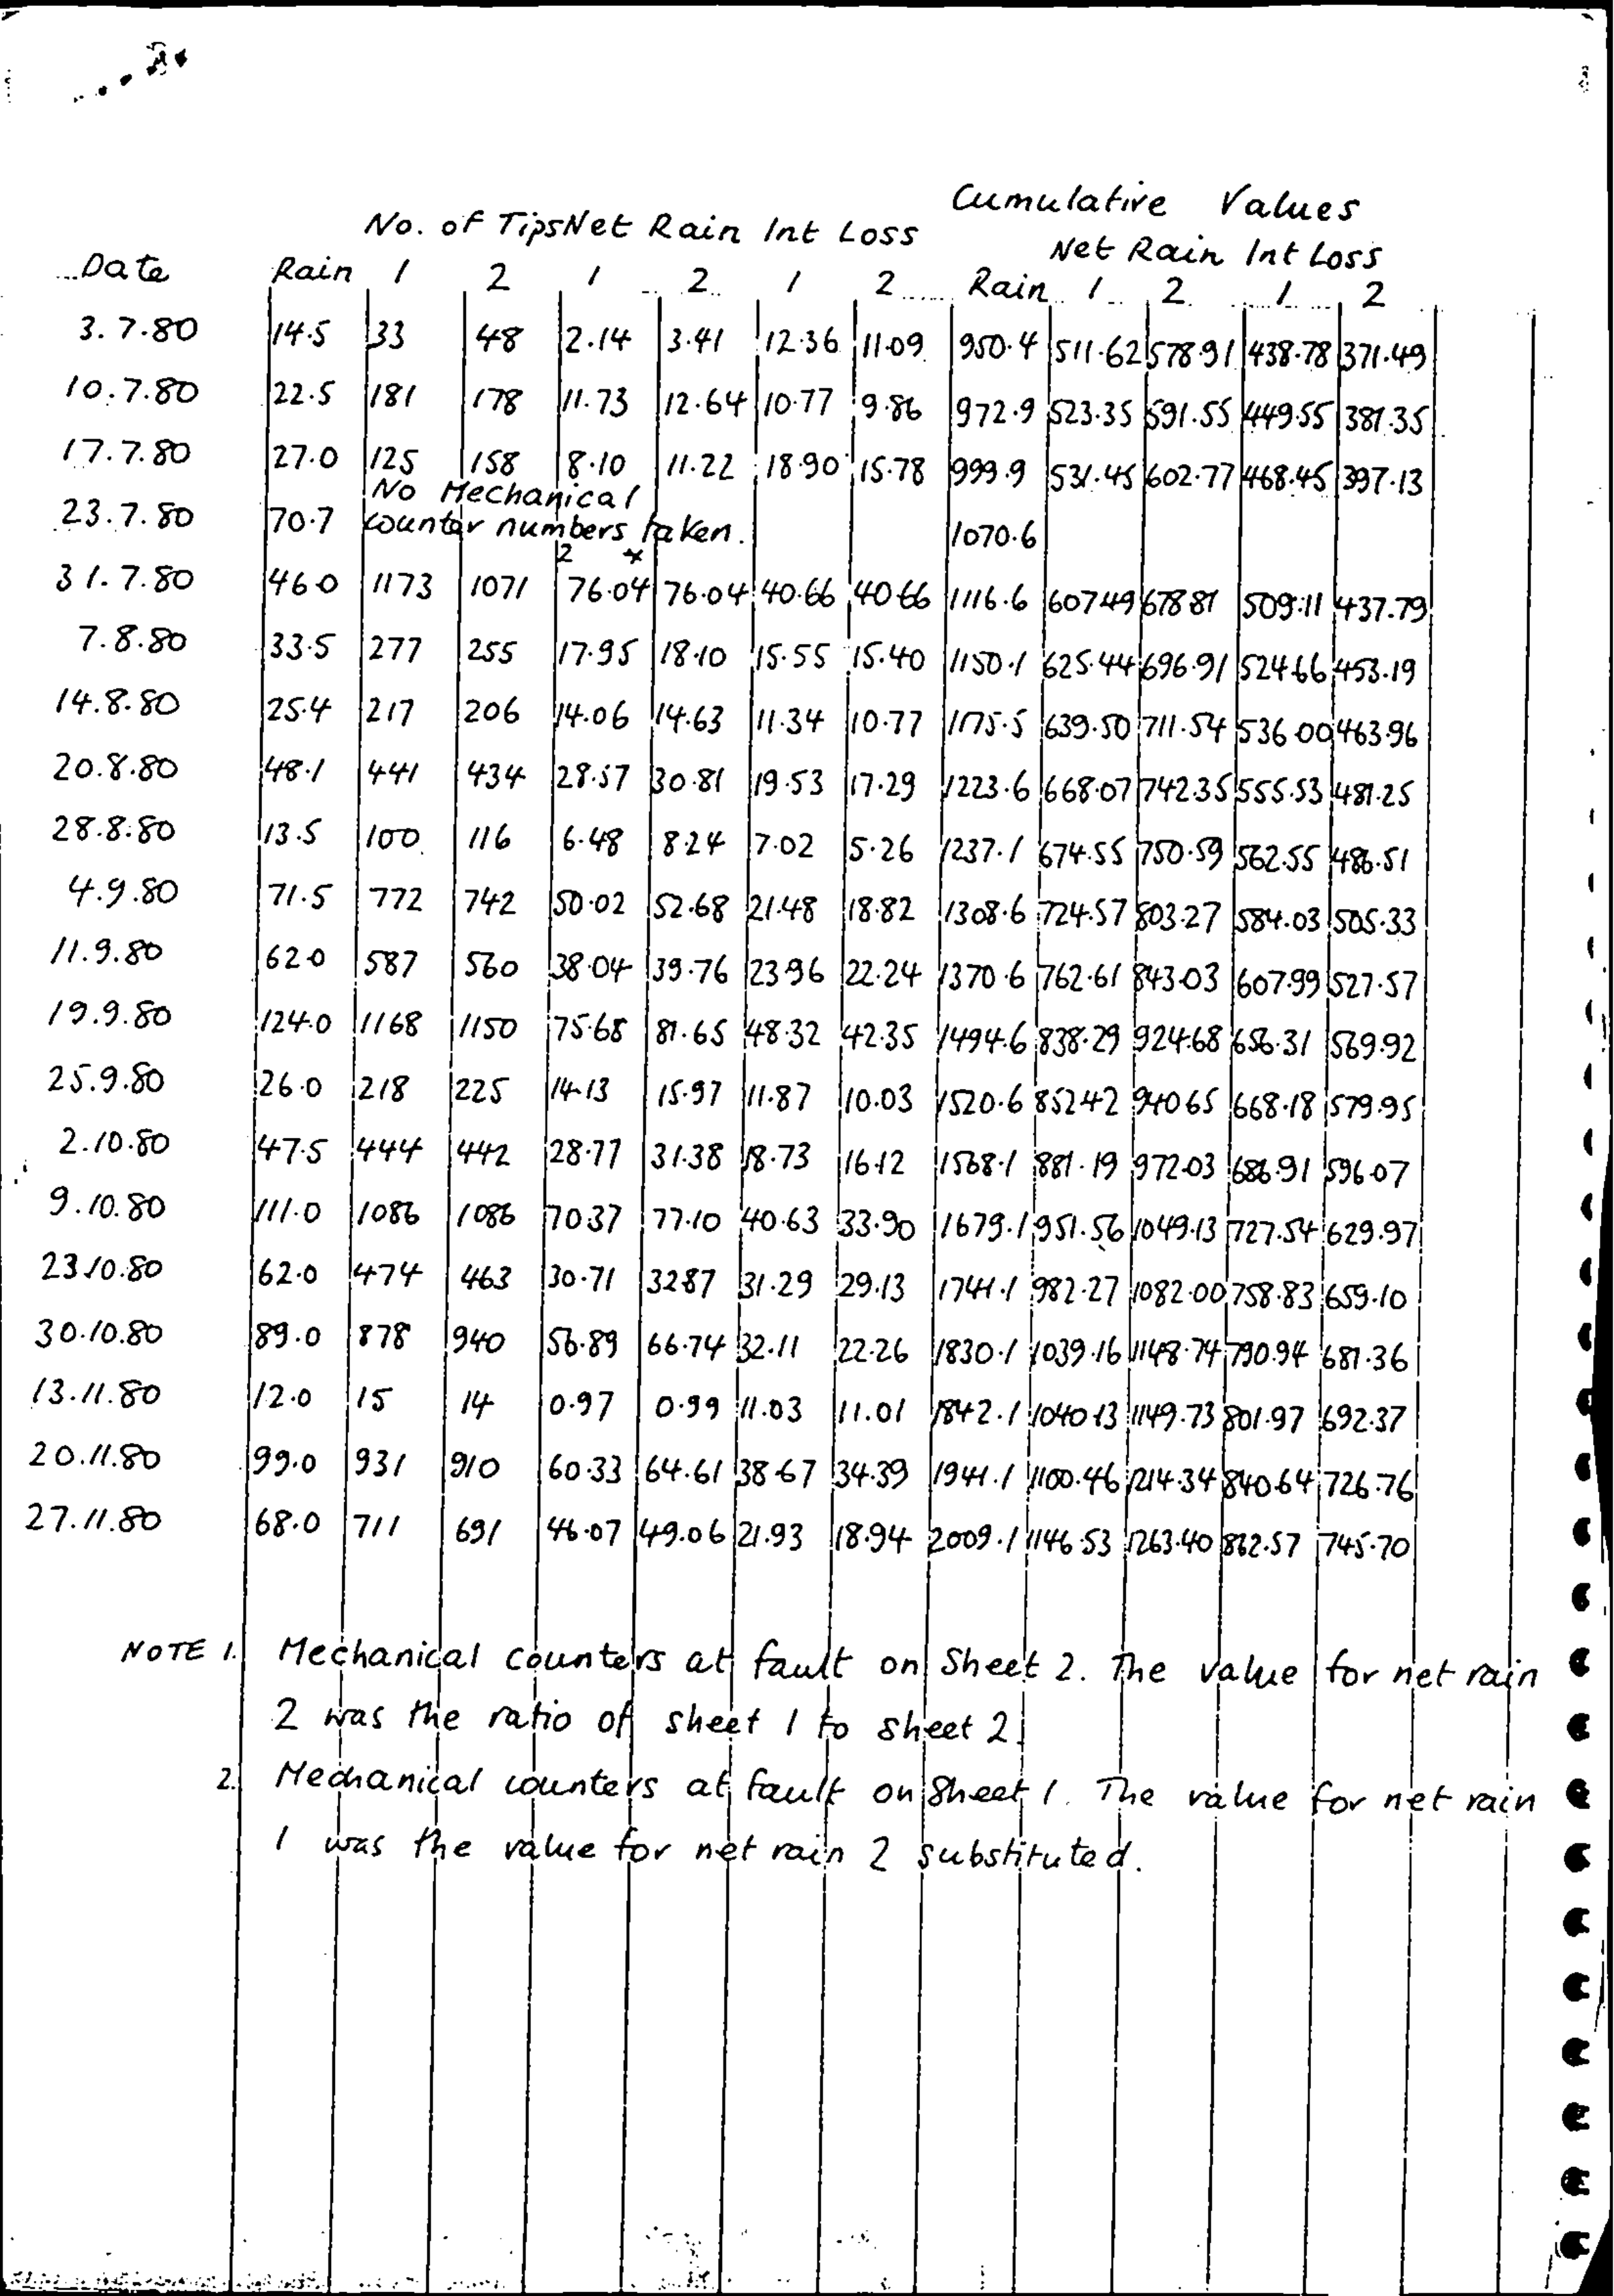 Cumulative Values
No. of Tips Net Rain Int Loss Net Rain Int Loss
Date Rain 1 2 1 2 1 2 Rain 1 2 1 2
3.7.80 14.5 33 48 2.14 3.41 12.36 11.09 950.4 511.62 578.91 438.78 371.49
10.7.80 22.5 181 178 11.73 12.64 10.77 9.86 972.9 523.35 591.55 449.55 381.35
17.7.80 27.0 125 158 8.10 11.22 18.90 15.78 999.9 531.45 602.77 468.45 397.13
No Mechanical
23.7.80 70.7 counter numbers taken. 1070.6
2 *
31.7.80 46.0 1173 1071 76.04 76.04 40.66 40.66 1116.6 607.49 678.81 509.11 437.79
7.8.80 33.5 277 255 17.95 18.10 15.55 15.40 1150.1 625.44 696.91 524.66 453.19
14.8.80 25.4 217 206 14.06 14.63 11.34 10.77 1175.5 639.50 711.54 536.00 463.96
20.8.80 48.1 441 434 28.57 30.81 19.53 17.29 1223.6 668.07 742.35 555.53 481.25
28.8.80 13.5 100 116 6.48 8.24 7.02 5.26 1237.1 674.55 750.59 562.55 486.51
4.9.80 71.5 772 742 50.02 52.68 21.48 18.82 1308.6 724.57 803.27 584.03 505.33
11.9.80 62.0 587 560 38.04 39.76 23.96 22.24 1370.6 762.61 843.03 607.99 527.57
19.9.80 124.0 1168 1150 75.68 81.65 48.32 42.35 1494.6 838.29 924.68 656.31 569.92
25.9.80 26.0 218 225 14.13 15.97 11.87 10.03 1520.6 852.42 940.65 668.18 579.95
2.10.80 47.5 444 442 28.77 31.38 18.73 16.12 1568.1 881.19 972.03 686.91 596.07
9.10.80 111.0 1086 1086 70.37 77.10 40.63 33.90 1679.1 951.56 1049.13 727.54 629.97
23.10.80 62.0 474 463 30.71 32.87 31.29 29.13 1741.1 982.27 1082.00 758.83 659.10
30.10.80 89.0 878 940 56.89 66.74 32.11 22.26 1830.1 1039.16 1148.74 790.94 681.36
13.11.80 12.0 15 14 0.97 0.99 11.03 11.01 1842.1 1040.13 1149.73 801.97 692.37
20.11.80 99.0 931 910 60.33 64.61 38.67 34.39 1941.1 1100.46 1214.34 840.64 726.76
27.11.80 68.0 711 691 46.07 49.06 21.93 18.94 2009.1 1146.53 1263.40 862.57 745.70
NOTE 1. Mechanical counters at fault on Sheet 2. The value for net rain
2 was the ratio of sheet 1 to sheet 2.
2. Mechanical counters at fault on Sheet 1. The value for net rain
1 was the value for net rain 2 substituted.